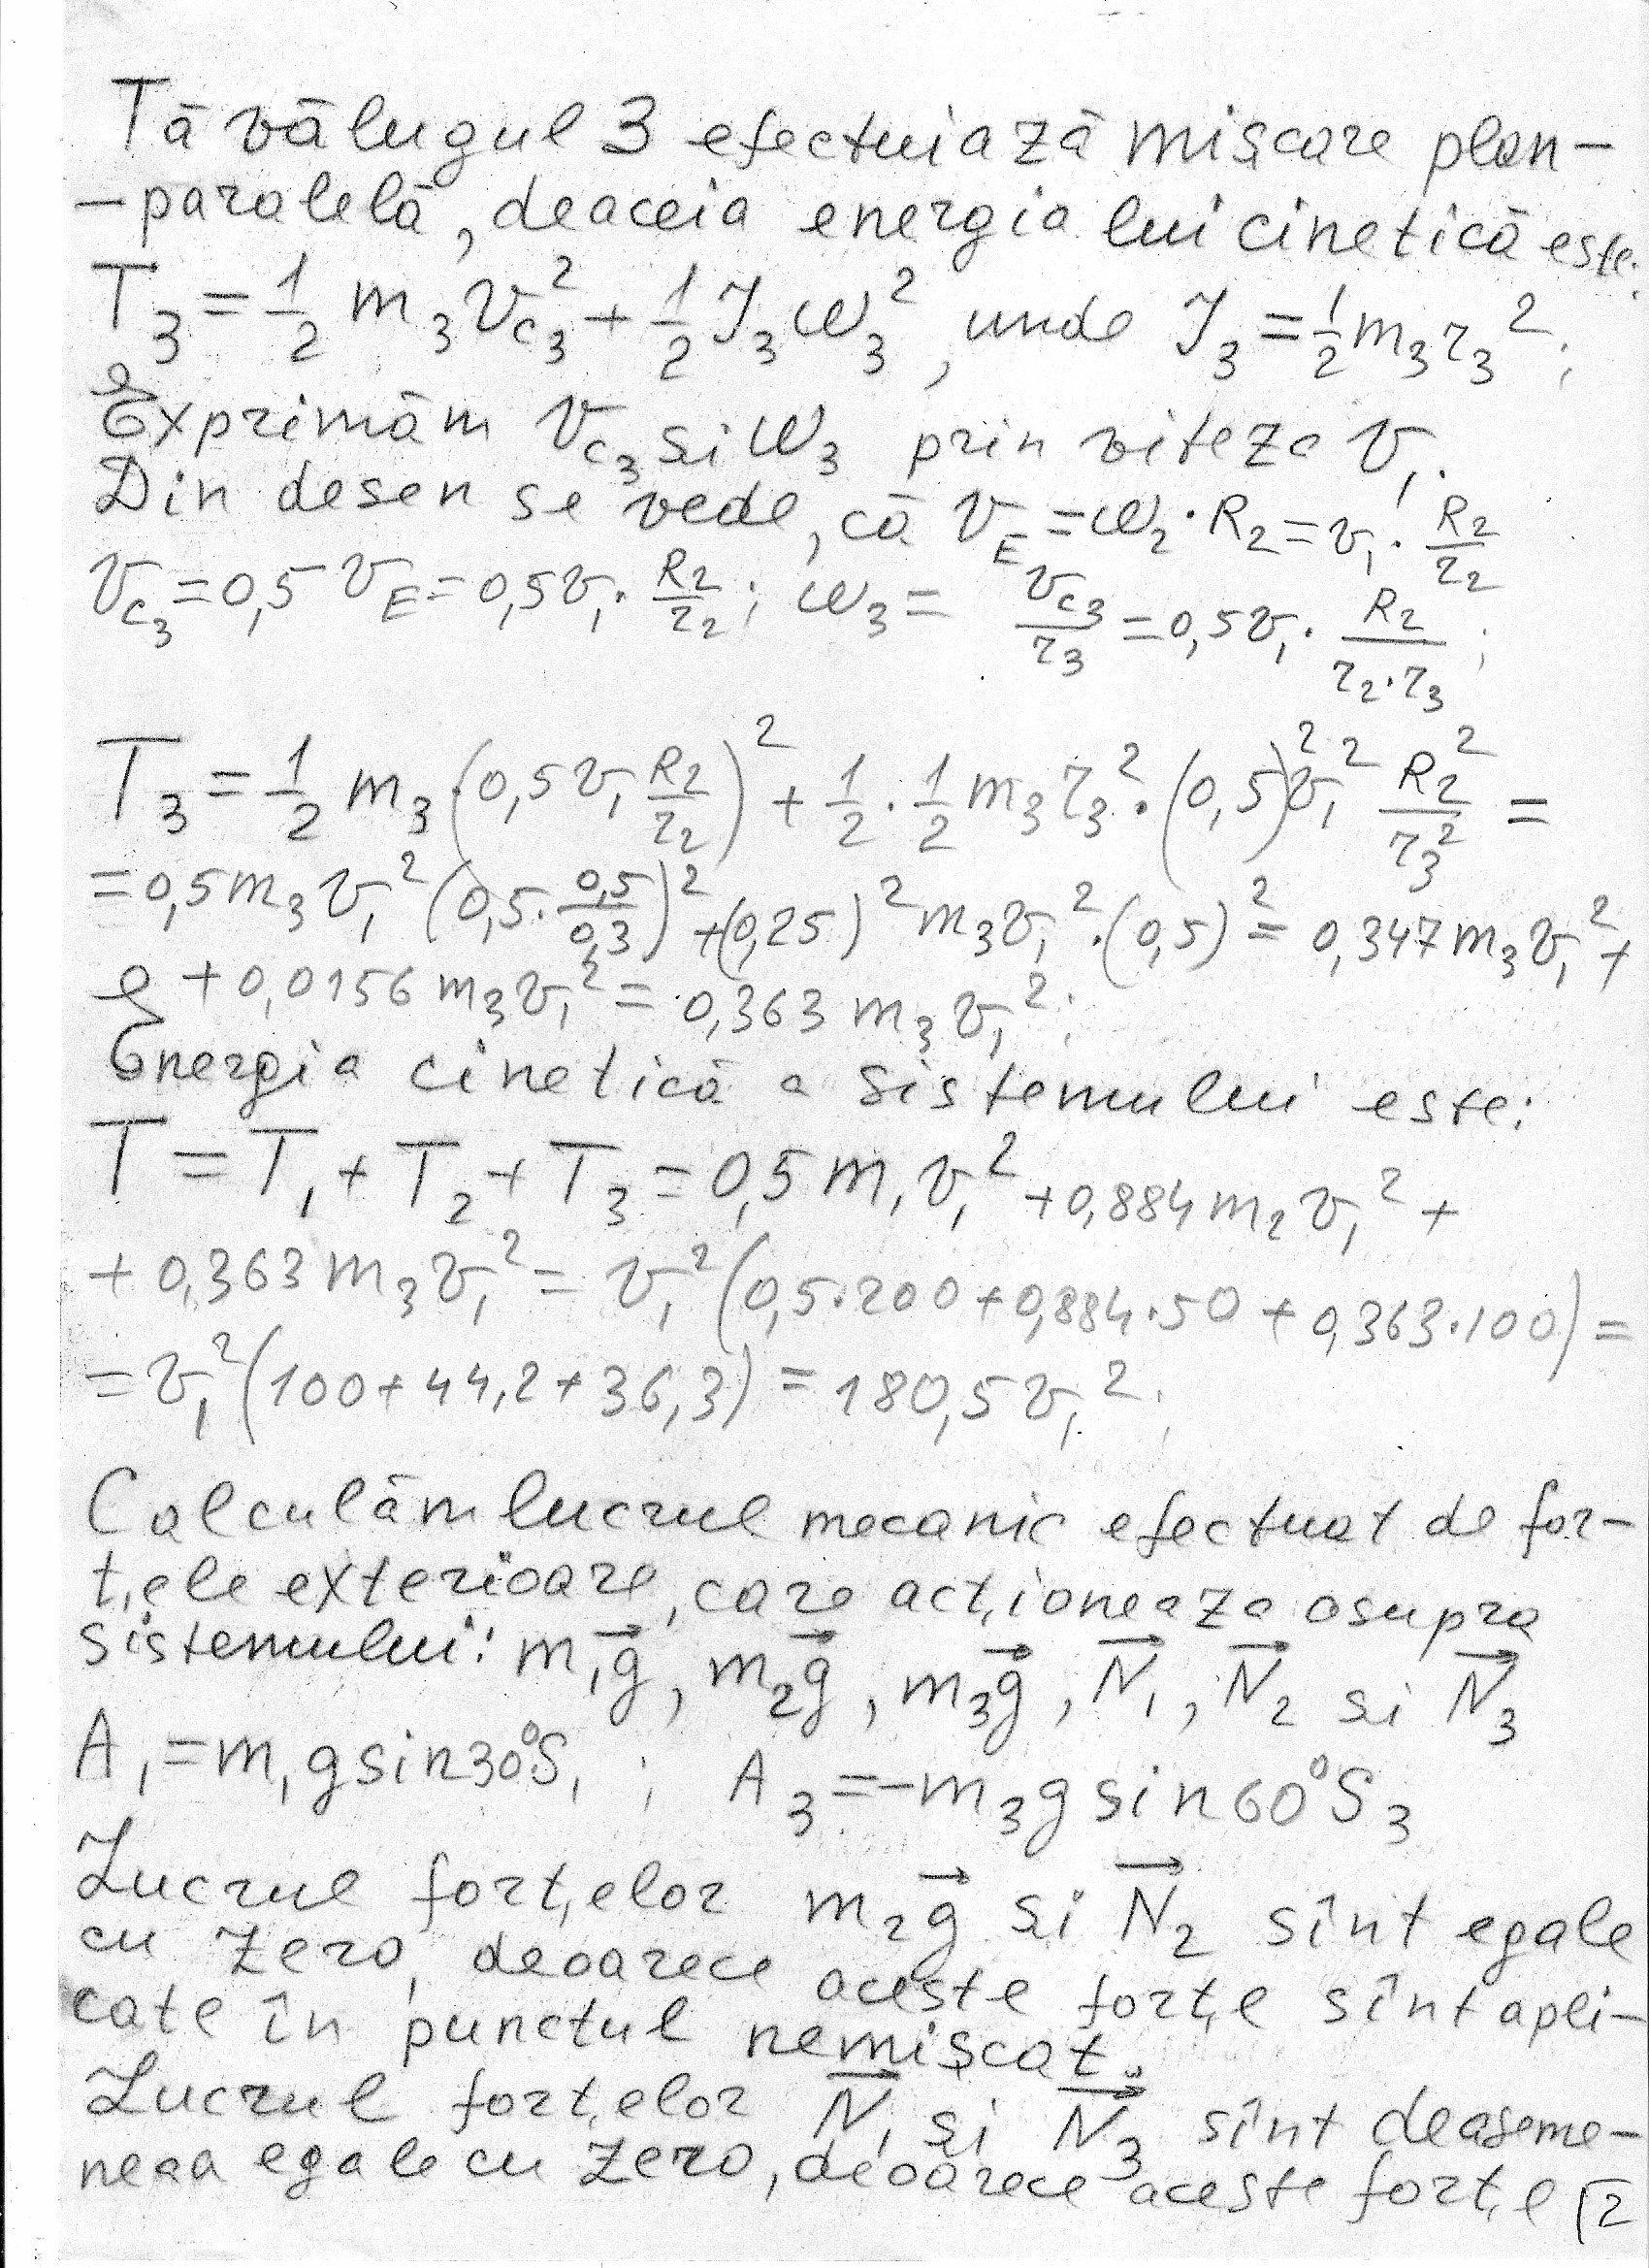 Tăvălugul 3 efectuiază mișcare plan-
-paralelă, deaceia energia lui cinetică este:
T₃ = 1/2 m₃ v_C₃² + 1/2 J₃ ω₃², unde J₃ = 1/2 m₃ r₃²;
Exprimăm v_C₃ și ω₃ prin viteza v₁.
Din desen se vede, că v_E = ω₂·R₂ = v₁· R₂/r₂
v_C₃ = 0,5 v_E = 0,5 v₁· R₂/r₂; ω₃ = v_C₃/r₃ = 0,5 v₁· R₂/(r₂·r₃);
T₃ = 1/2 m₃·(0,5 v₁ R₂/r₂)² + 1/2 · 1/2 m₃ r₃²·(0,5)² v₁² R₂²/r₃² =
= 0,5 m₃ v₁² (0,5· 0,5/0,3)² + (0,25)² m₃ v₁²·(0,5)² = 0,347 m₃ v₁² +
+ 0,0156 m₃ v₁² = 0,363 m₃ v₁²;
Energia cinetică a sistemului este:
T = T₁ + T₂ + T₃ = 0,5 m₁ v₁² + 0,884 m₂ v₁² +
+ 0,363 m₃ v₁² = v₁² (0,5·200 + 0,884·50 + 0,363·100) =
= v₁² (100 + 44,2 + 36,3) = 180,5 v₁²;
Calculăm lucrul mecanic efectuat de for-
țele exterioare, care acționeaza asupra
sistemului: m₁g⃗, m₂g⃗, m₃g⃗, N⃗₁, N⃗₂ și N⃗₃
A₁ = m₁ g sin30° S₁ ; A₃ = -m₃ g sin60° S₃
Lucrul forțelor m₂g⃗ și N⃗₂ sînt egale
cu zero, deoarece aceste forțe sînt apli-
cate în punctul nemișcat.
Lucrul forțelor N⃗₁ și N⃗₃ sînt deaseme-
neaa egale cu zero, deoarece aceste forțe [2